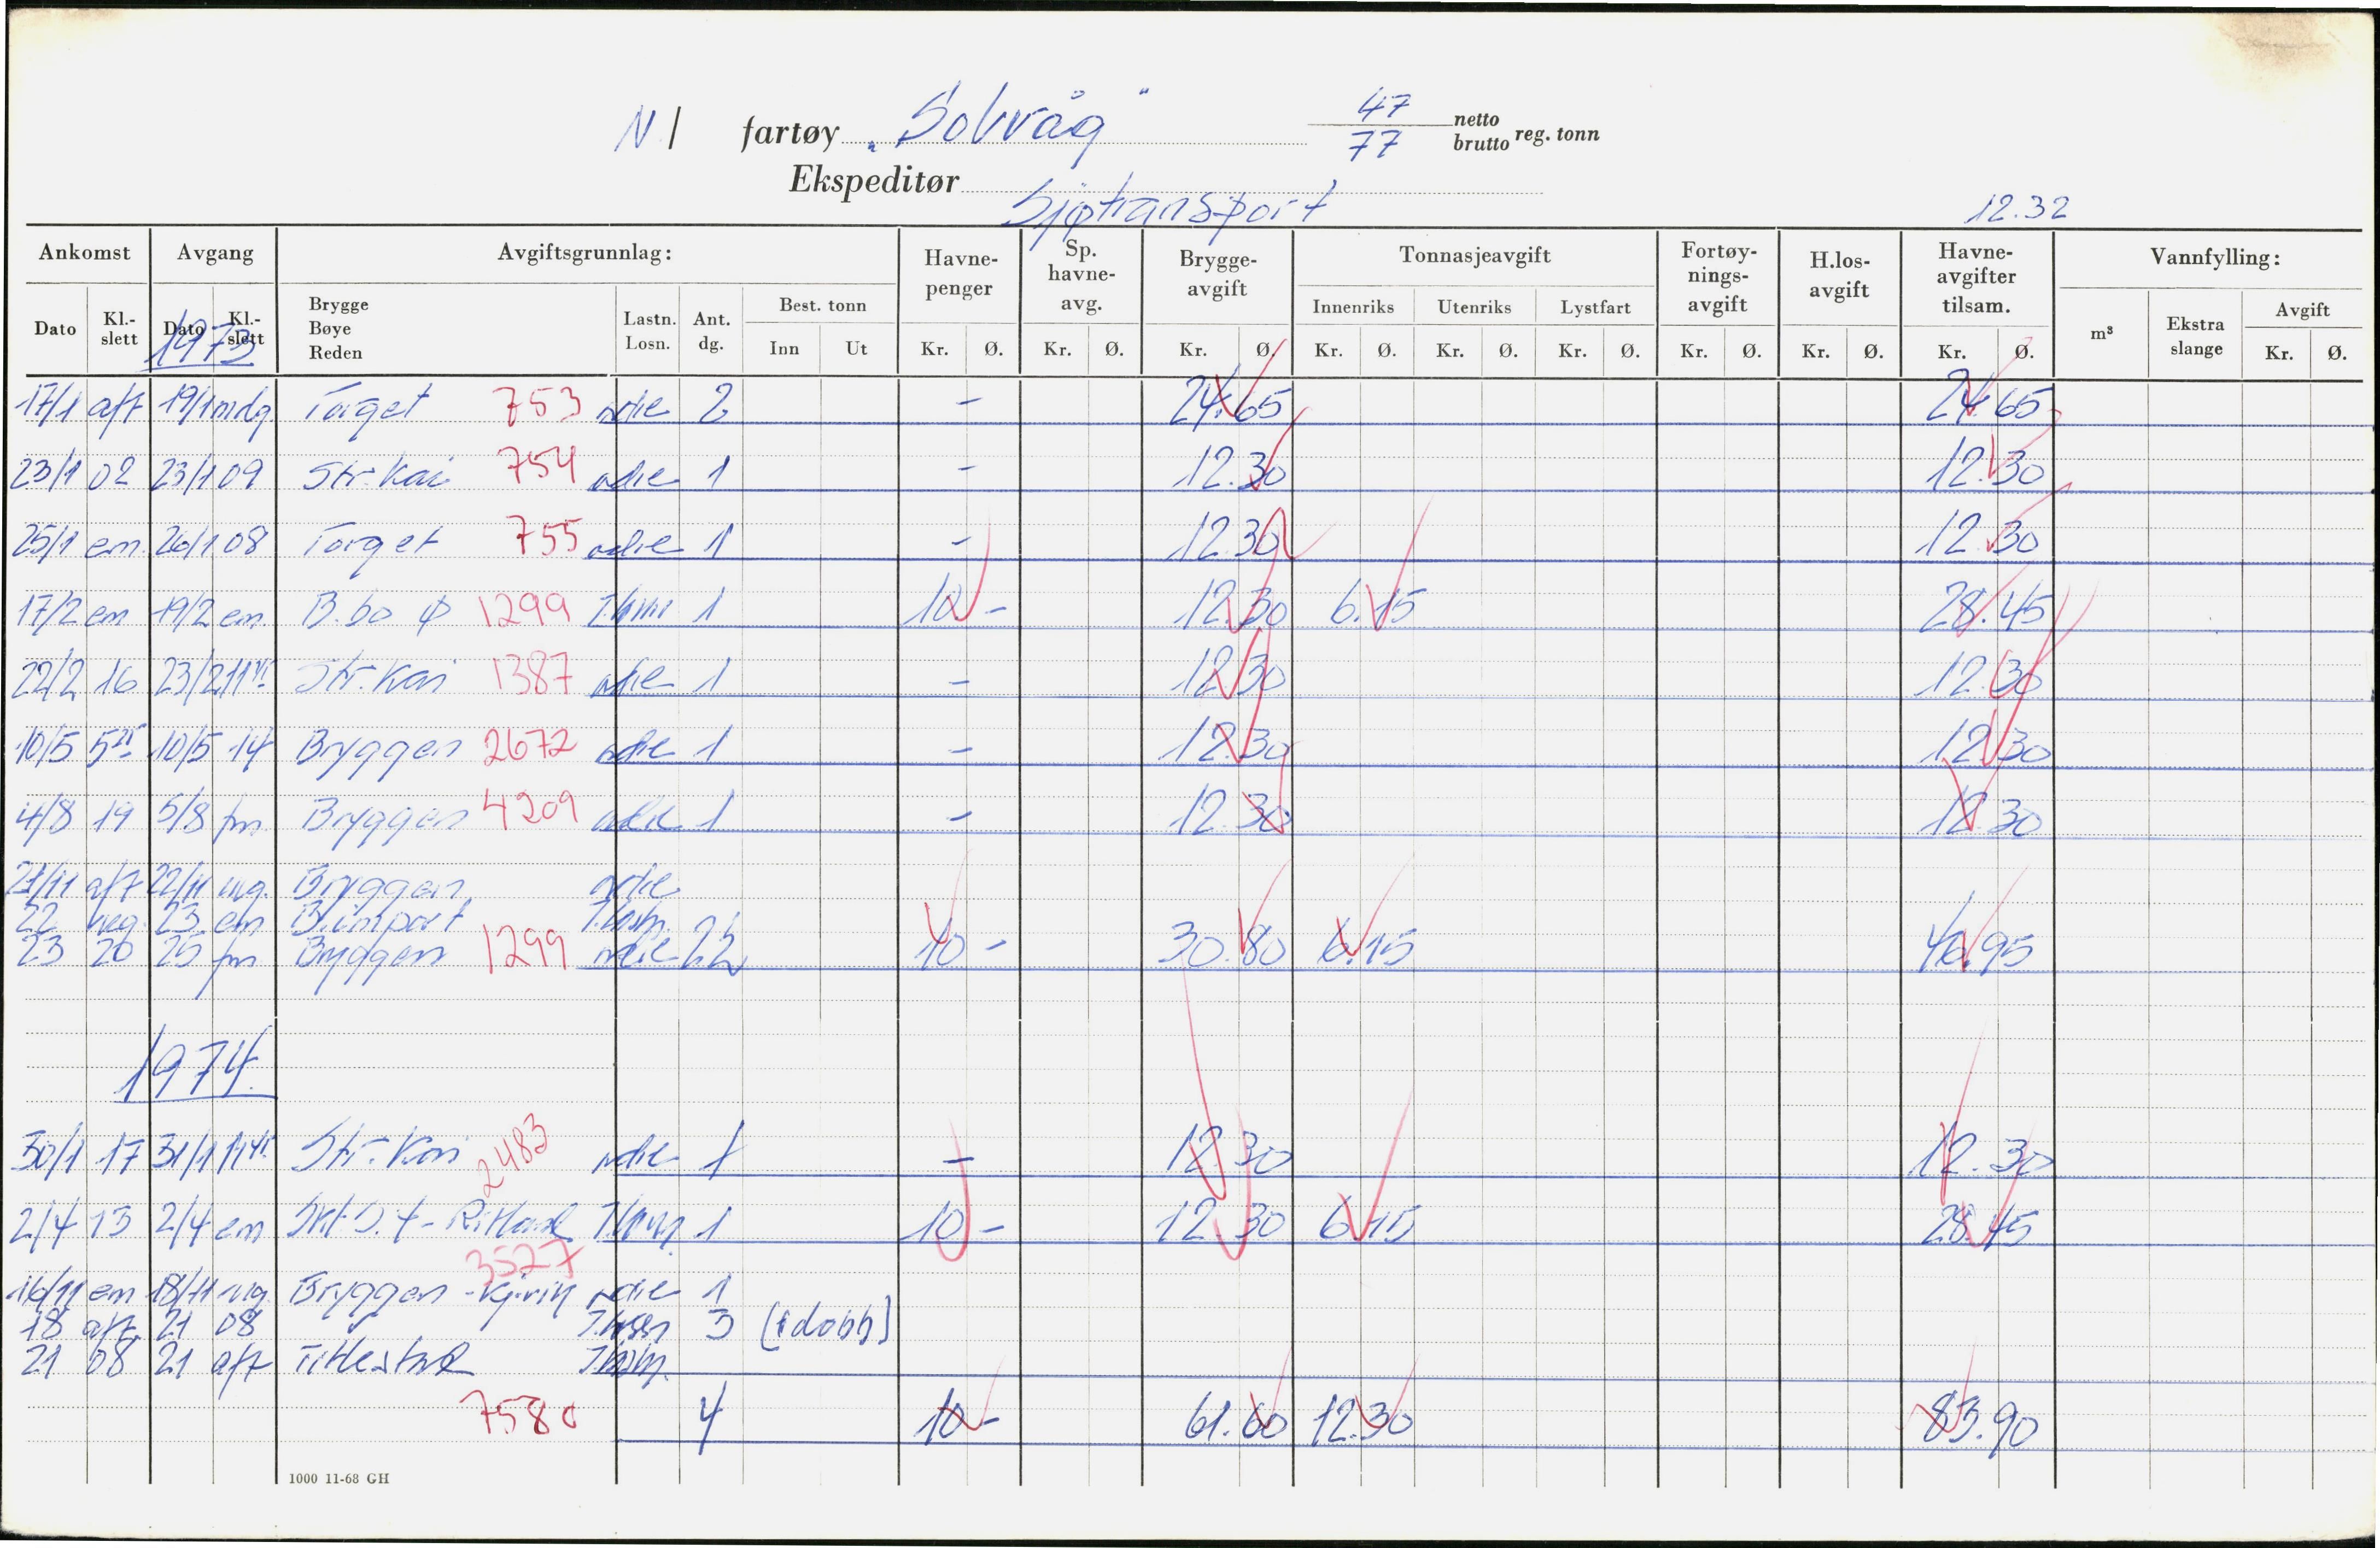 N | fartøy „Solvåg" 47 netto
77 brutto reg. tonn
Ekspeditør Sjøtransport
12.32
Ankomst Avgang Avgiftsgrunnlag: Havne-penger Sp. havne-avg. Brygge-avgift Tonnasjeavgift Fortøy-nings-avgift H.los-avgift Havne-avgifter tilsam. Vannfylling:
Dato Kl.-slett Dato Kl.-slett Brygge Bøye Reden Lastn. Losn. Ant. dg. Best. tonn Innenriks Utenriks Lystfart m³ Ekstra slange Avgift
1973
Inn Ut Kr. Ø. Kr. Ø. Kr. Ø. Kr. Ø. Kr. Ø. Kr. Ø. Kr. Ø. Kr. Ø. Kr. Ø. Kr. Ø.
17/1 aft 19/1 mdg. Torget 753 2 - 24.65 24.65
23/1 02 23/1 09 Str.kai 754 1 - 12.30 12.30
25/1 em. 26/1 08 Torget 755 1 - 12.30 12.30
17/2 em 19/2 em. 1299 1 10 - 12.30 6.15 28.45
22/2 16 23/2 Str.kai 1387 1 - 12.30 12.30
10/5 10/5 14 Bryggen 2672 1 - 12.30 12.30
4/8 19 5/8 fm. Bryggen 4209 1 - 12.30 12.30
21/11 aft 22/11 mg. Bryggen
22 mg. 23 em B.import
23 20 25 fm Bryggen 1299 10 - 30.80 6.15 46.95
1974.
30/1 17 31/1 Str.kai 2483 1 - 12.30 12.30
2/4 13 2/4 em 1 10 - 12.30 6.15 28.45
3527
16/11 em 18/11 mg. Bryggen 1
18 aft. 21 08 3 (1 dobb)
21 08 21 aft
7580 4 10 - 61.60 12.30 83.90
1000 11-68 GH